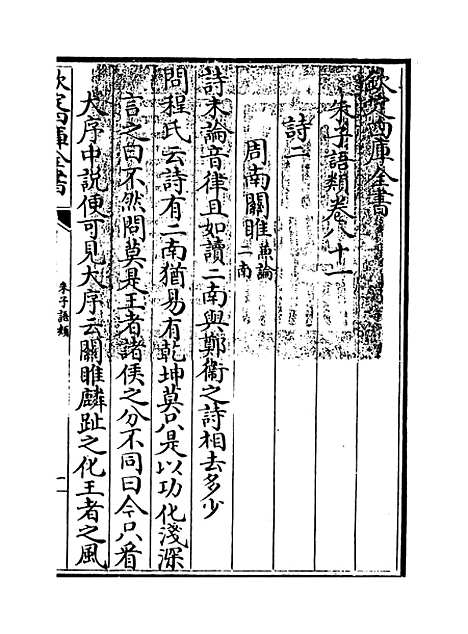 欽定四庫全書
朱子語類卷八十一
詩二
周南關雎兼論二南
詩未論音律且如讀二南與鄭衞之詩相去多少
問程氏云詩有二南猶易有乾坤莫只是以功化淺深
言之曰不然問莫是王者諸侯之分不同曰今只看
大序中說便可見大序云關雎麟趾之化王者之風
欽定四庫全書
朱子語類
一